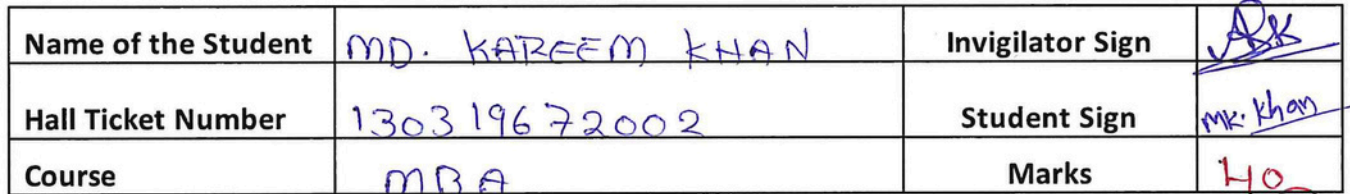 Name of the Student MD. KAREEM KHAN Invigilator Sign ASK
Hall Ticket Number 130319672002 Student Sign MK. Khan
Course MBA Marks 40